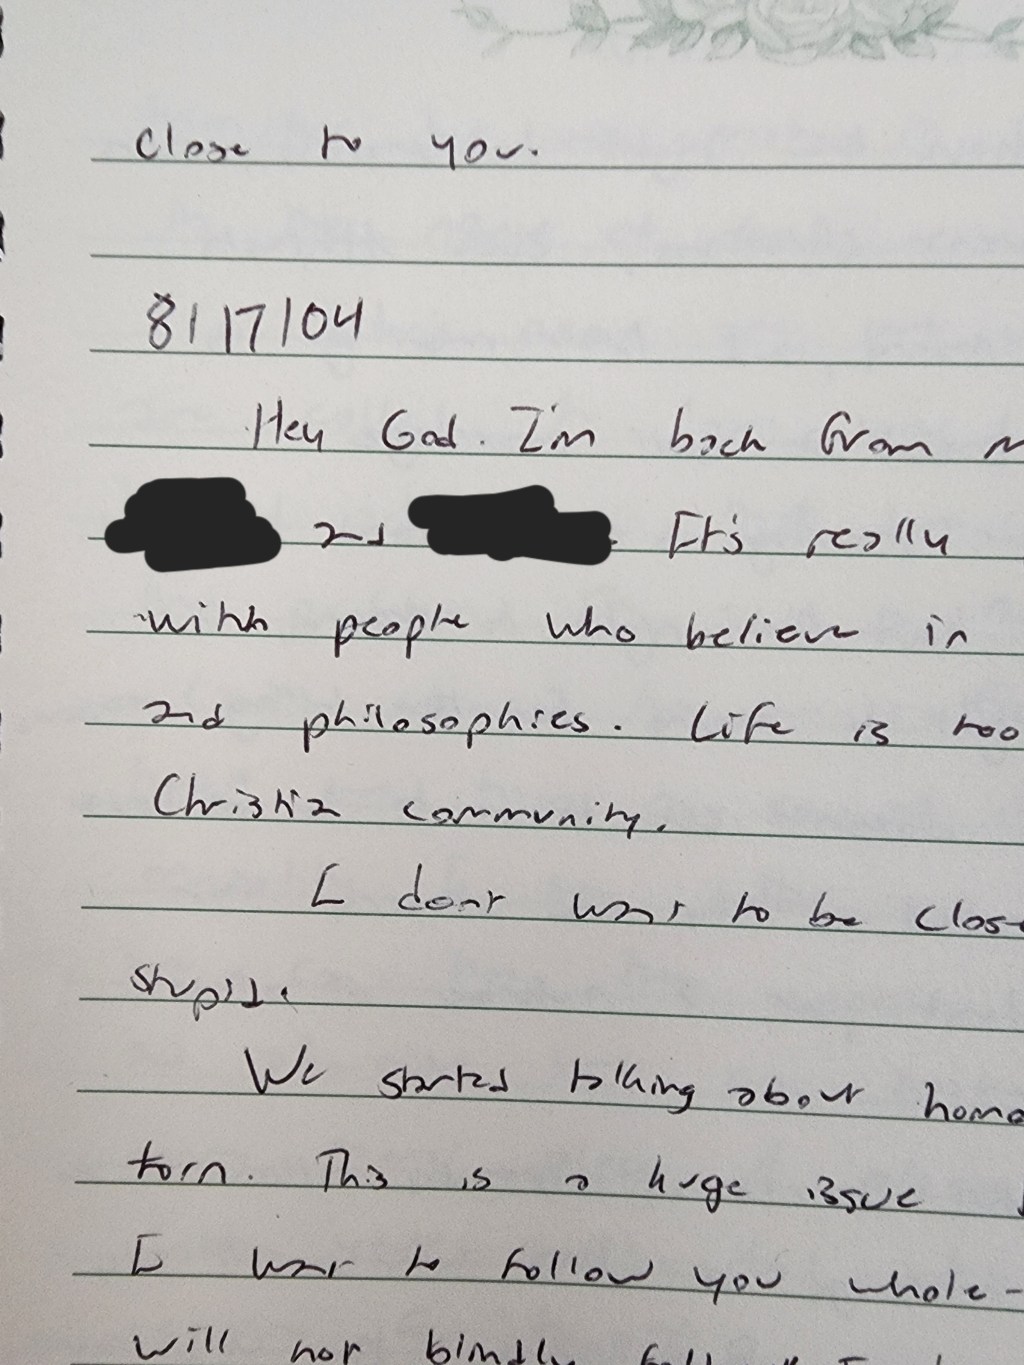 close to you.
8/17/04
Hey God. I'm back from
and It's really
with people who believe in
and philosophies. Life is too
Christia community.
I dont want to be close
stupid.
We started talking about homo
torn. This is a huge issue
I want to follow you whole-
will not bindly